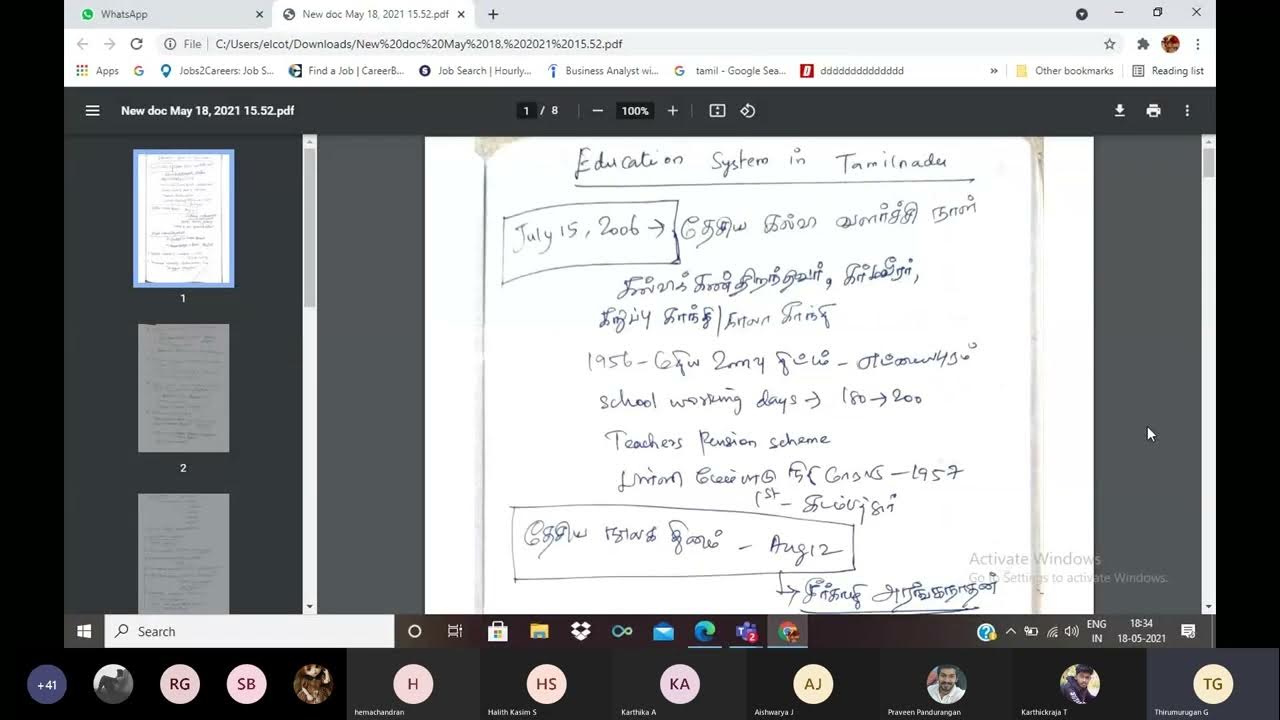 WhatsApp
New doc May 18, 2021 15.52.pdf
File C:/Users/elcot/Downloads/New%20doc%20May%2018,%202021%2015.52.pdf
Apps Jobs2Careers: Job S... Find a Job | CareerB... Job Search | Hourly... Business Analyst wi... tamil - Google Sea... dddddddddddddd » Other bookmarks Reading list
New doc May 18, 2021 15.52.pdf 1 / 8 100%
1
2
Education System in Tamilnadu
July 15, 2006 → தேசிய கல்வி வளர்ச்சி நாள்
கல்விக் கண்திறந்தவர், கர்மவீரர்,
கறுப்பு காந்தி / காலா காந்தி
1956 - மதிய உணவு திட்டம் - எட்டையபுரம்
school working days → 180 → 200
Teachers Pension scheme
பள்ளி மேம்பாடு சீர் மாநாடு - 1957
1st - கடம்பத்தூர்
தேசிய நூலக தினம் - Aug 12
→ சீர்காழி அரங்கநாதன்
Activate Windows
Go to Settings to activate Windows.
Search
ENG
IN
18:34
18-05-2021
+41 RG SB H HS KA AJ TG
hemachandran Halith Kasim S Karthika A Aishwarya J Praveen Pandurangan Karthickraja T Thirumurugan G